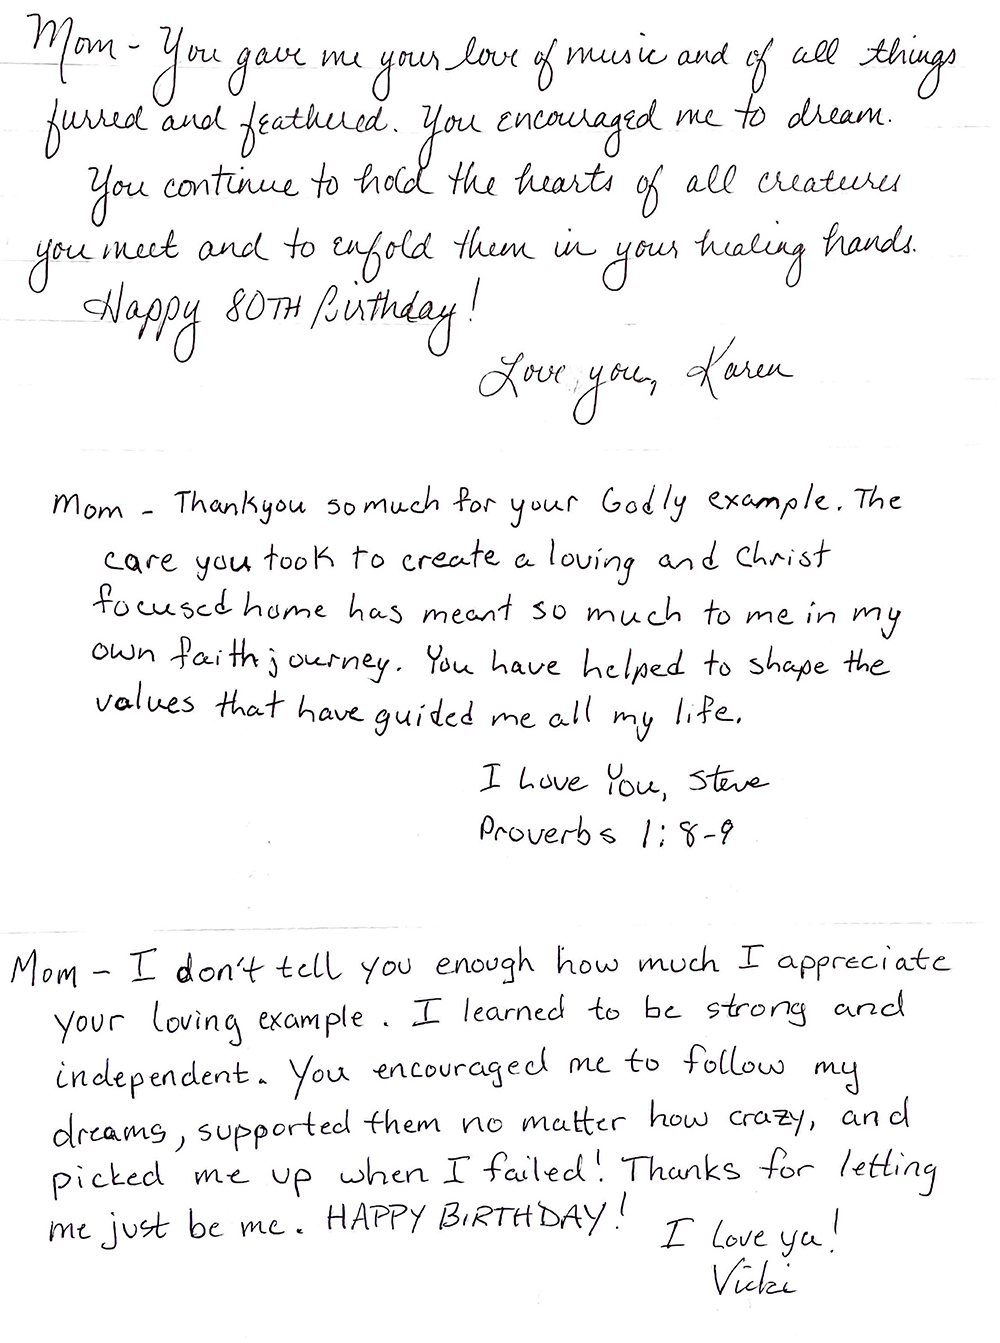 Mom - You gave me your love of music and of all things
furred and feathered. You encouraged me to dream.
You continue to hold the hearts of all creatures
you meet and to enfold them in your healing hands.
Happy 80TH Birthday!
Love you, Karen
Mom - Thankyou so much for your Godly example. The
care you took to create a loving and Christ
focused home has meant so much to me in my
own faith journey. You have helped to shape the
values that have guided me all my life.
I Love You, Steve
Proverbs 1:8-9
Mom - I don't tell you enough how much I appreciate
your loving example. I learned to be strong and
independent. You encouraged me to follow my
dreams, supported them no matter how crazy, and
picked me up when I failed! Thanks for letting
me just be me. HAPPY BIRTHDAY!
I Love ya!
Vicki